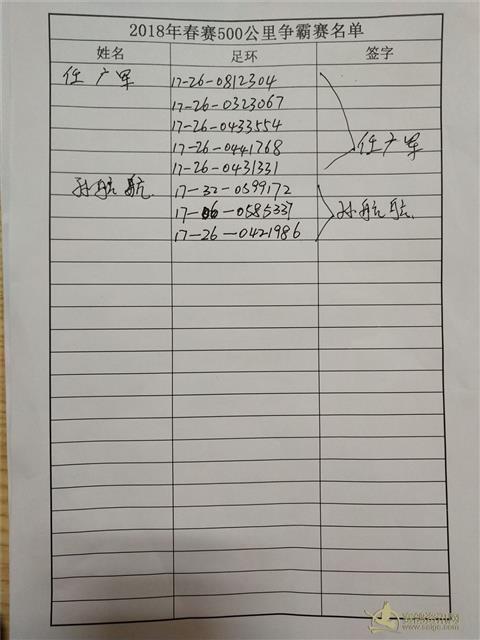 2018年春赛500公里争霸赛名单
姓名 足环 签字
任广军 17-26-0812304
17-26-0323067
17-26-0433554
17-26-0441768 任广军
17-26-0431331
孙航航 17-32-0599172
17-06-0585337 孙航航
17-26-0421986
赛鸽资讯网
www.saige.com